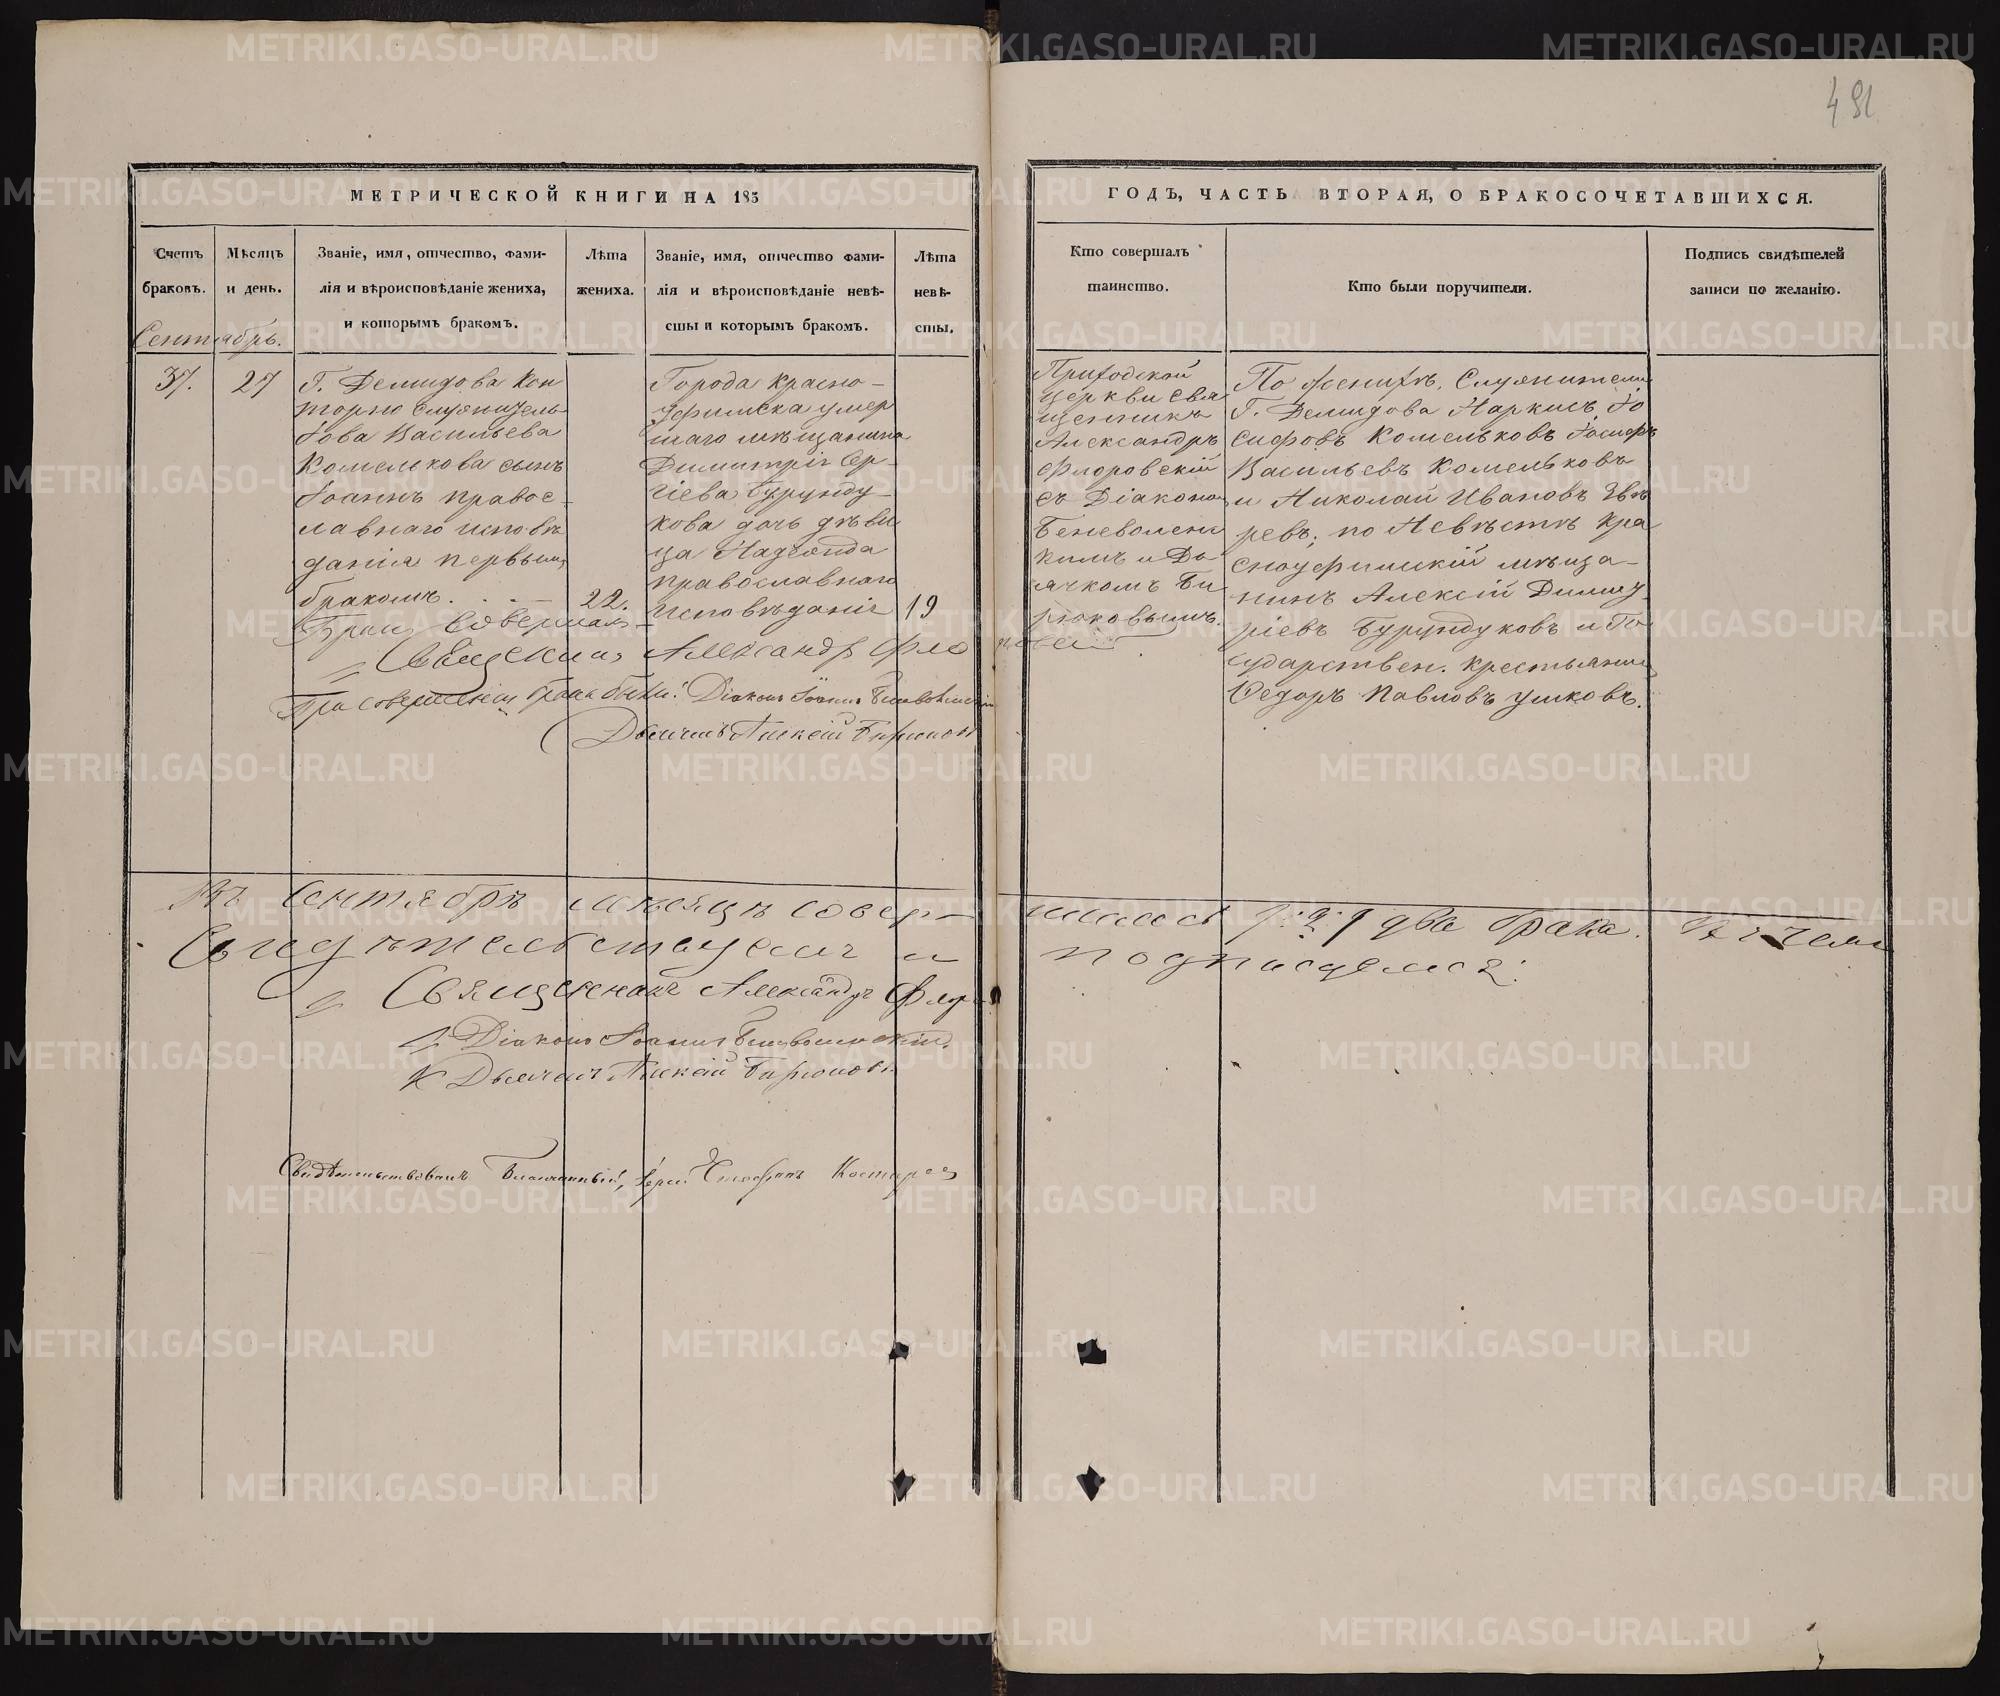 491
МЕТРИЧЕСКОЙ КНИГИ НА 185
ГОДЪ, ЧАСТЬ ВТОРАЯ, О БРАКОСОЧЕТАВШИХСЯ.
Счетъ
браковъ.
Мѣсяцъ
и день.
Званіе, имя, отчество, фами-
лія и вѣроисповѣданіе жениха,
и которымъ бракомъ.
Лѣта
жениха.
Званіе, имя, отчество фами-
лія и вѣроисповѣданіе невѣ-
сты и которымъ бракомъ.
Лѣта
невѣ-
сты.
Кто совершалъ
таинство.
Кто были поручители.
Подпись свидѣтелей
записи по желанію.
Сентябрь.
37.
27
Г. Демидова Кон
торно служитель
Іова Васильева
Комелькова сынъ
Іоаннъ правос-
лавнаго исповѣ
данія первымъ
бракомъ.
22.
Города Красно-
уфимска умер
шаго мѣщанина
Димитрія Сер-
гіева Бурунду-
кова дочь дѣви
ца Надежда
православнаго
исповѣданія
19
Приходской
церкви свя
щенникъ
Александръ
Флоровскій
съ Діакономъ
Беневоленс
кимъ и Дь-
ячкомъ Би
рюковымъ.
По женихѣ, Служители
Г. Демидова Наркисъ Іо
сифовъ Комельковъ Іосифъ
Васильевъ Комельковъ
и Николай Ивановъ Звѣ
ревъ; по Невѣстѣ Кра
сноуфимскій мѣща-
нинъ Алексій Димит
ріевъ Бурундуковъ и Го
сударствен. крестьянинъ
Ѳедоръ Павловъ Ушковъ.
Бракъ совершалъ
Священникъ Александръ Флоровскій
При совершеніи брака были: Діаконъ Іоаннъ Беневоленскій
Дьячекъ Алексій Бирюковъ
Въ Сентябрѣ мѣсяцѣ совер-
шилось 2 два брака. Въ чемъ
Свидѣтельствуемъ и
подписуемся:
Священникъ Александръ Флоровскій
Діаконъ Іоаннъ Беневоленскій.
Дьячекъ Алексій Бирюковъ.
Свидѣтельствовалъ Благочинный, Іерей Стефанъ Костарев
METRIKI.GASO-URAL.RU